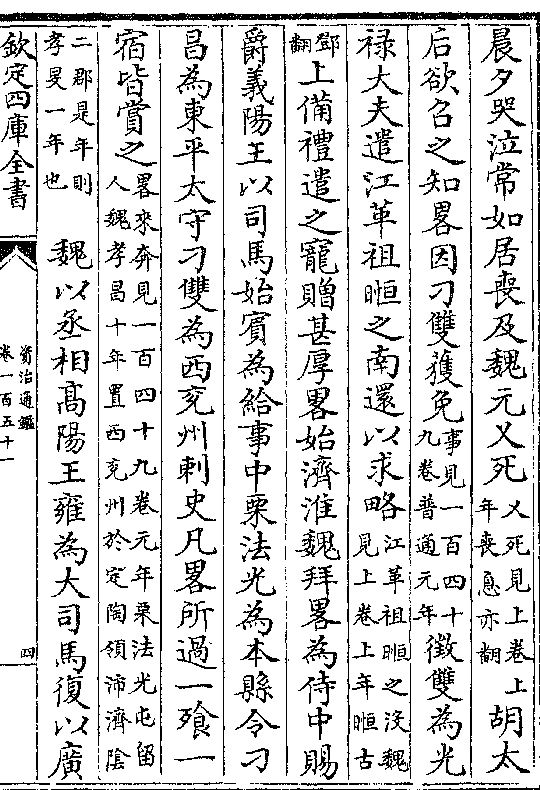 晨夕哭泣常如居喪及魏元乂死乂死見上卷上年喪息亦翻胡太
后欲召之知畧因刁雙獲免事見一百四十九卷普通元年徵雙為光
禄大夫遣江革祖暅之南還以求略江革祖暅之没魏見上卷上年暅古
鄧翻上備禮遣之寵贈甚厚畧始濟淮魏拜畧為侍中賜
爵義陽王以司馬始賓為給事中栗法光為本縣令刁
昌為東平太守刁雙為西兖州刺史凡畧所過一飱一
宿皆賞之畧來奔見一百四十九卷元年栗法光屯留人魏孝昌十年置西兖州於定陶領沛濟隂
二郡是年則孝旻一年也魏以丞相髙陽王雍為大司馬復以廣
欽定四庫全書
資治通鑑
卷一百五十一
四